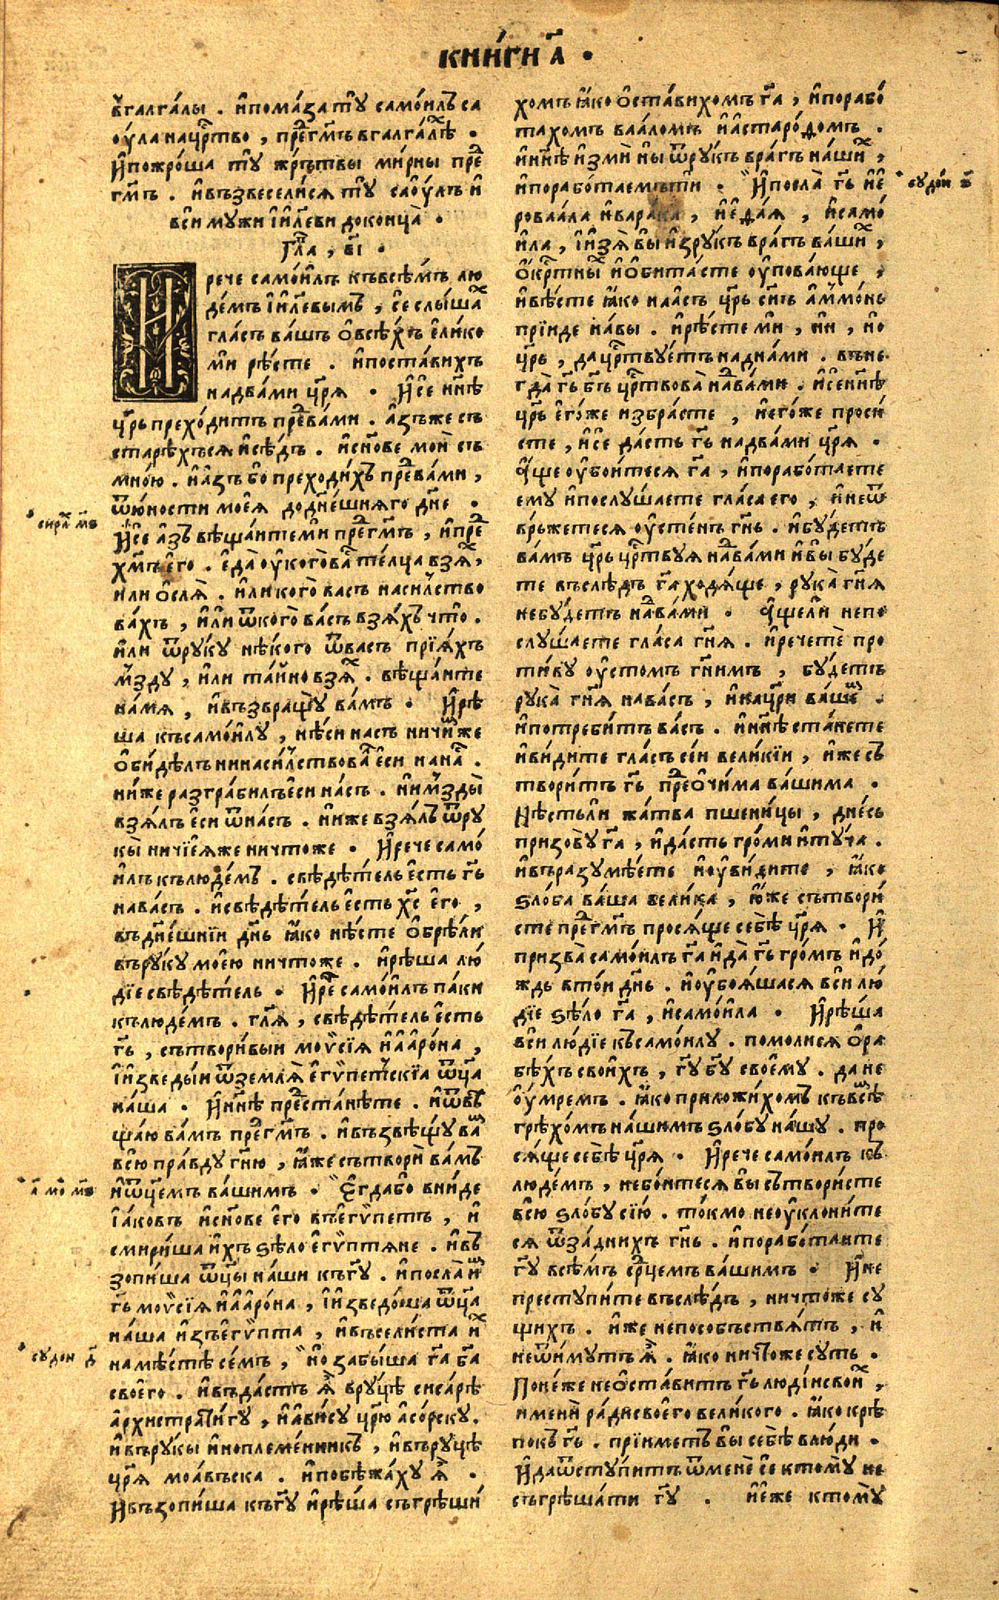 кни́ги а҃ .
в̾галга́лы . и҆пома́за тꙋ̀ само́илъ са
ѹ́ла на цр҃тво , пре́гм҃ъ в̾галга́лѣ .
И҆пожро́ша тꙋ̀ жръ́твы ми́рны пре
гм҃ъ . и҆възвесели́ся тꙋ̀ сао́улъ и҆
вси мꙋжи і҆и҃леви доконца̀ .
Гла̀ , в҃і .
И҆рече само́илъ къвсѣ́мъ лю
де́мъ і҆и҃левымъ , се слы́шах
гла́съ ва́шъ ѻ҆всѣ́хъ є҆лико
ми рѣ́сте . и҆поста́вихъ
надва́ми цр҃я . И҆се нн҃ѣ
цр҃ь прехо́дитъ преⷣва́ми . а҆зъже съ
старѣ́хъся и҆сѣ́дъ . и҆сн҃ове мои́ съ
мно́ю . и҆а҆зъ бо преходи́хъ преⷣва́ми ,
ѿю́ности моея̀ до дн҃е́шняго дн҃е .
И҆се а҆зъ вѣща́итеми преⷣгм҃ъ , и҆преⷣ
хм҃ъ є҆го̀ . є҆да̀ ѹ҆кого̀ ва́ те́лца взя́х ,
и҆ли ѻ҆сля̀ . и҆ли кого̀ ва́съ наси́лство
ва́хъ , и҆ли ѿкого̀ ва́съ взя́хъ что̀ .
и҆ли ѿрꙋкꙋ нѣ́кого ѿва́съ прїя́хъ
мздꙋ , и҆ли та́йно взя́х . вѣща́ите
на́мя , и҆възвращꙋ̀ ва́мъ . И҆рѣ
ша къ само́илꙋ , нѣ́си на́съ ничи́мже
ѻ҆би́дѣлъ нинаси́лствова є҆си на́съ .
ни́же разгра́билъ є҆си на́съ . нимзды̀
взя́лъ є҆си ѿна́съ . ниже взя́лъ ѿрꙋ
кы̀ ничїея́же ничтоже . И҆рече само́
илъ къ люде́мъ . свѣдѣ́тель є҆сть гь҃
нава́съ . и҆свѣдѣ́тель є҆сть хс҃ є҆го̀ ,
въдн҃е́шнїи дн҃ь я҆́ко нѣ́сте ѻ҆брѣ́ли
върꙋ́кꙋ мое́ю ничто́же . и҆рѣ́ша лю́
дїе свѣдѣ́тель . И҆ре само́илъ па́ки
къ люде́мъ . гл҃я , свѣдѣ́тель є҆сть
гь҃ , сътвори́выи моѵ̈сїя и҆а҆а҆ро́на ,
и҆и҆зведы́и ѿземля̀ є҆гѵ́петскїа ѿц҃а
на́ша . И҆нн҃ѣ преста́нѣте . и҆ѿвѣ
ща́ю ва́мъ преⷣгм҃ъ . и҆възвѣщꙋ̀ ва
всю̀ пра́вдꙋ гн҃ю , я҆́же сътворѝ ва́мъ
и҆ѿц҃емъ ва́шимъ . Є҆гда̀бо вни́де
і҆а́ковъ и҆сн҃ове є҆го̀ въ є҆гѵ́петъ , и҆
смири́ша и҆хъ ѕѣло̀ є҆гѵ́птяне . и҆въ
зопи́ша ѿц҃ы на́ши къ гꙋ҃ . и҆посла̀
гь҃ моѵ̈сїя и҆а҆а҆ро́на , и҆и҆зведо́ша ѿц҃а
на́ша и҆зъ є҆гѵ́пта , и҆въсели́ста и҆х
на мѣ́стѣ се́мъ , и҆ забы́ша га҃ ба҃
своего̀ . и҆въда́стъ я҆̀ врꙋцѣ̀ сиса́рѣ
а҆рхистрати́гꙋ , и҆а҆ви́сꙋ цр҃ю а҆со́рскꙋ .
и҆върꙋкы̀ и҆ноплеме́нникъ , и҆върꙋцѣ̀
цр҃я моа́въска . и҆побѣжа́хꙋ я҆̀ .
И҆възопи́ша къ гꙋ҃ и҆рѣ́ша съгрѣши́
хомъ я҆́ко ѻ҆ста́вихомъ га҃ , и҆порабо́
тахомъ ваало́мъ и҆а҆старо́домъ .
и҆нн҃ѣ и҆зми́ ны ѿрꙋ́къ вра́гъ на́ших ,
и҆порабо́таемъ ти́ . И҆посла̀ гь҃ и҆є
рова́ала и҆вара́ка , и҆є҆фа́я , и҆само́
ила , и҆и҆зя́ вы и҆зрꙋ́къ вра́гъ ва́ших ,
ѻ҆кр҃тныⷯ и҆ѻ҆бита́сте ѹ҆пова́юще ,
и҆вѣ́сте я҆́ко на́асъ цр҃ь сн҃ъ а҆ммо́нь
прїи́де на́вы . и҆рѣ́сте ми , ни , но
цр҃ь , да цр҃твꙋетъ на́днами . въне
гда̀ гь҃ бг҃ъ цр҃твова̀ наⷣва́ми . и҆се нн҃ѣ
цр҃ь є҆го́же избра́сте , и҆его́же проси́
сте , и҆се да́стъ гь҃ надва́ми цр҃я .
А҆ще ѹ҆бои́теся га҃ , и҆порабо́таете
емꙋ и҆послꙋшаете гла́са его , и҆неѿ
връ́жетеся ѹ҆сте́нъ гн҃ь . и҆бꙋ́детъ
ва́мъ цр҃ь цр҃твꙋя наⷣва́ми и҆вы бꙋ́де
те въслѣ́дъ га҃ ходя́ще , рꙋка̀ гн҃я
небꙋ́детъ наⷣва́ми . А҆щели непо
слꙋ́шаете гла́са гн҃я . и҆речетѐ про
ти́вꙋ ѹ҆сто́мъ гн҃имъ , бꙋ́детъ
рꙋка̀ гн҃я нава́съ , и҆нацр҃и ва́шеⷨ .
и҆потреби́тъ ва́съ . и҆нн҃ѣ ста́нете
и҆ви́дите гла́съ се́и вели́кїи , и҆же съ
твори́тъ гь҃ преⷣ ѻ҆чи́ма ва́шима .
Нѣ́стьли жа́тва пшени́цы , дне́сь
призовꙋ̀ га҃ , и҆да́стъ гро́ми и҆тꙋча .
и҆въразꙋмѣ́ете и҆ѹ҆ви́дите , я҆́ко
ѕло́ба ва́ша вели́ка , ю҆́же сътвори́
сте преⷣгм҃ъ прося́ще себѣ̀ цр҃я . И҆
призва̀ само́илъ га҃ и҆да̀ гь҃ гро́мъ и҆до́
ждь вто́и дн҃ь . и҆ѹ҆боя́шася вси лю́
дїе ѕѣло̀ га҃ , и҆само́ила . И҆рѣ́ша
вси лю́дїе къ само́илꙋ . помоли́ся ѻ҆ра
бѣ́хъ свои́хъ , гꙋ҃ бꙋ҃ своемꙋ̀ . да не
ѹ҆мремъ . я҆́ко приложи́хомъ къвсѣⷨ
грѣхо́мъ на́шимъ ѕло́бꙋ на́шꙋ . про
ся́ще себѣ̀ цр҃я . И҆рече само́илъ къ
люде́мъ , небо́итеся вы сътвори́сте
всю̀ ѕло́бꙋ сїю̀ . то́кмо неѹ҆клони́те
ся ѿза́днихъ гн҃ь . и҆порабо́таите
гꙋ҃ всѣ́мъ срⷣцемъ ва́шимъ . И҆не
престꙋпи́те въслѣ́дъ , ничто́же сꙋ
щихъ . и҆же непособъствя́тъ , и҆
неѿи́мꙋтъ я҆̀ . я҆́ко ничто́же сꙋть .
Поне́же неѻ҆ста́витъ гь҃ лю́дїи свои́х ,
и́мени ра́ди своего̀ вели́кого . я҆́ко крѣ
покъ гь҃ . прїиметъ вы себѣ̀ влю́ди .
И҆даѿстꙋпи́тъ ѿменѐ є҆́же ктомꙋ̀ не
съгрѣша́ти гꙋ҃ . и҆є҆же ктомꙋ̀